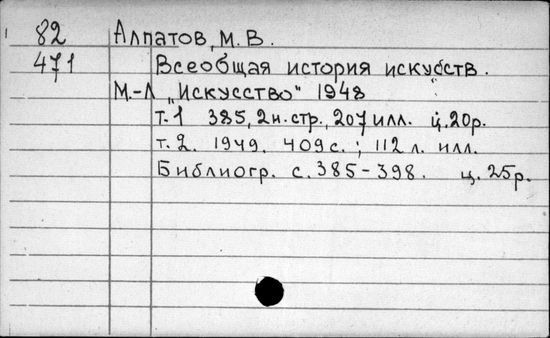 82 Алпатов, М. В.
471 Всеобщая история искусств.
М.-Л „Искусство" 1948
т.1 385, 2н.стр., 207 илл. ц. 20р.
т. 2. 1949. 409 с. ; 112 л. илл.
Библиогр. с. 385-398. ц. 25р.